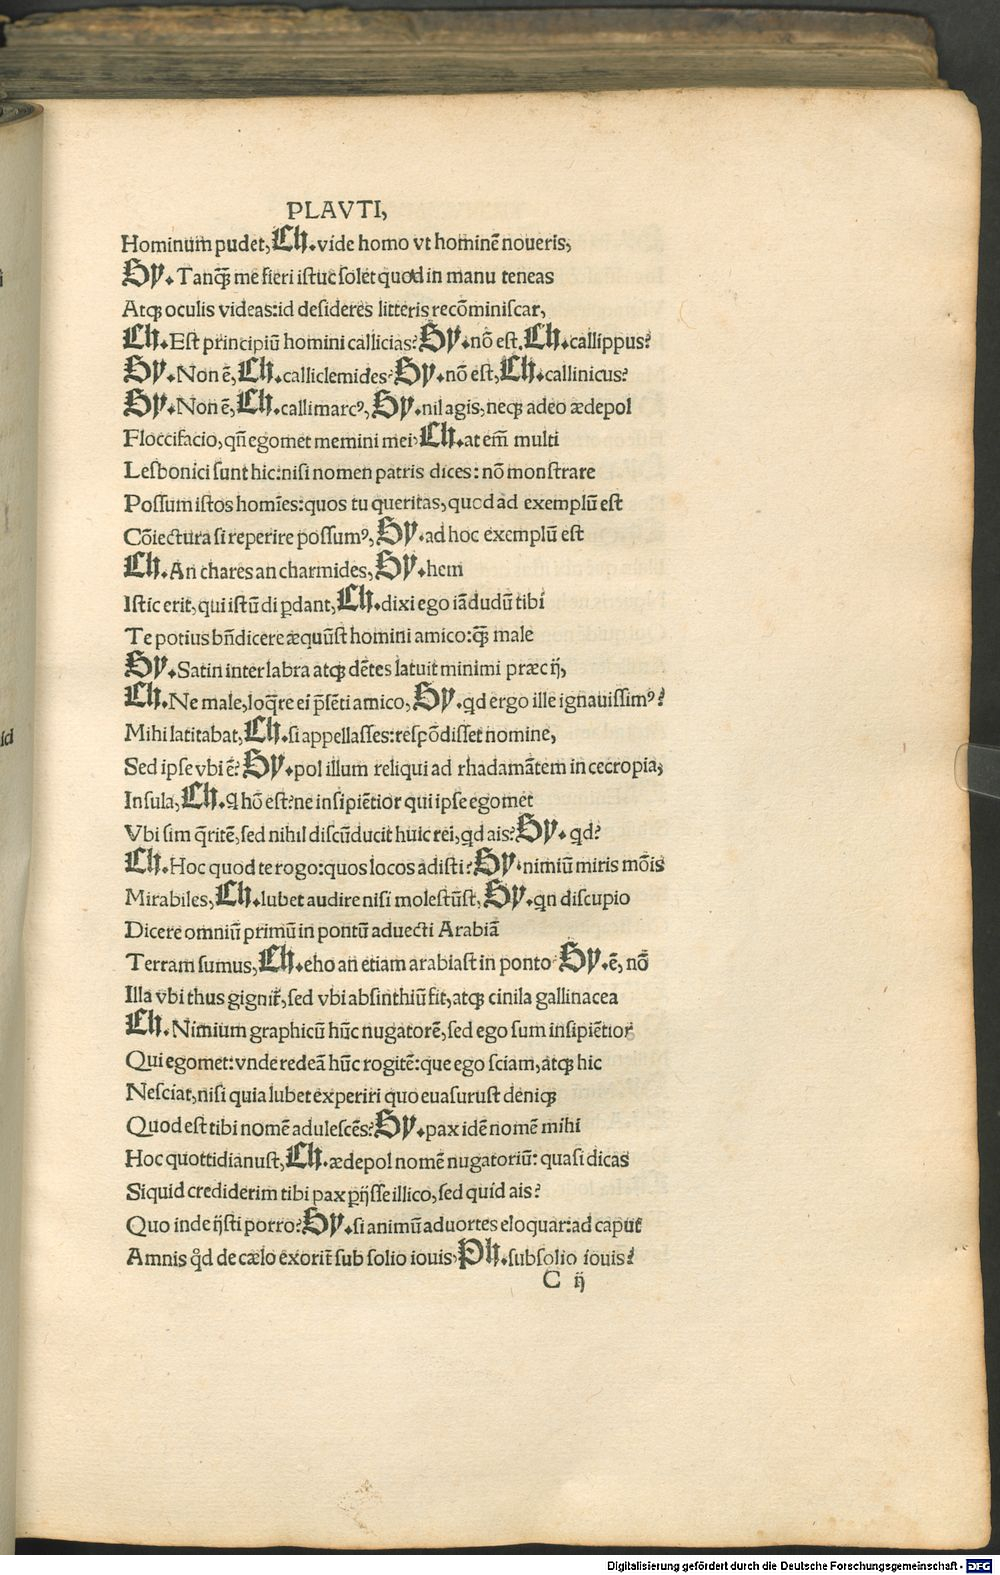 PLAVTI,
Hominum pudet, Ch. vide homo vt hominē noueris,
Sy. Tanq̄ me fieri istuc solet quod in manu teneas
Atqꝫ oculis videas: id desideres litteris recōminiscar,
Ch. Est principiū homini callicias? Sy. nō est. Ch. callippus?
Sy. Non ē, Ch. calliclemides? Sy. nō est, Ch. callinicus?
Sy. Non ē, Ch. callimarcꝰ, Sy. nil agis, neqꝫ adeo ædepol
Floccifacio, qn̄ egomet memini mei, Ch. at em̄ multi
Lesbonici sunt hic: nisi nomen patris dices: nō monstrare
Possum istos homīes: quos tu queritas, quod ad exemplū est
Cōiectura si reperire possumꝰ, Sy. ad hoc exemplū est
Ch. An chares an charmides, Sy. hem
Istic erit, qui istū di ꝑdant, Ch. dixi ego iādudū tibi
Te potius bn̄dicere æquūst homini amico: q̄ male
Sy. Satin inter labra atqꝫ dētes latuit minimi præcij,
Ch. Ne male, loq̄re ei p̄sēti amico, Sy. qd ergo ille ignauissimꝰ?
Mihi latitabat, Ch. si appellasses: respōdisset nomine,
Sed ipse vbi ē? Sy. pol illum reliqui ad rhadamātem in cecropia,
Insula, Ch. q hō est? ne insipiētior qui ipse egomet
Vbi sim q̄ritē, sed nihil discūducit huic rei, qd ais? Sy. qd?
Ch. Hoc quod te rogo: quos locos adisti? Sy. nimiū miris mōis
Mirabiles, Ch. lubet audire nisi molestūst, Sy. qn discupio
Dicere omniū primū in pontū aduecti Arabiā
Terram sumus, Ch. eho an etiam arabiast in ponto Sy. ē, nō
Illa vbi thus gignit̄, sed vbi absinthiū fit, atqꝫ cinila gallinacea
Ch. Nimium graphicū hūc nugatorē, sed ego sum insipiētior
Qui egomet: vnde redeā hūc rogitē: que ego sciam, atqꝫ hic
Nesciat, nisi quia lubet experiri quo euasurust deniqꝫ
Quod est tibi nomē adulescēs? Sy. pax idē nomē mihi
Hoc quottidianust, Ch. ædepol nomē nugatoriū: quasi dicas
Siquid crediderim tibi pax ꝑijsse illico, sed quid ais?
Quo inde ijsti porro? Sy. si animū aduortes eloquar: ad caput
Amnis q̇d de cælo exorit̄ sub solio iouis, Ph. sub solio iouis?
C ij
Digitalisierung gefördert durch die Deutsche Forschungsgemeinschaft - DFG